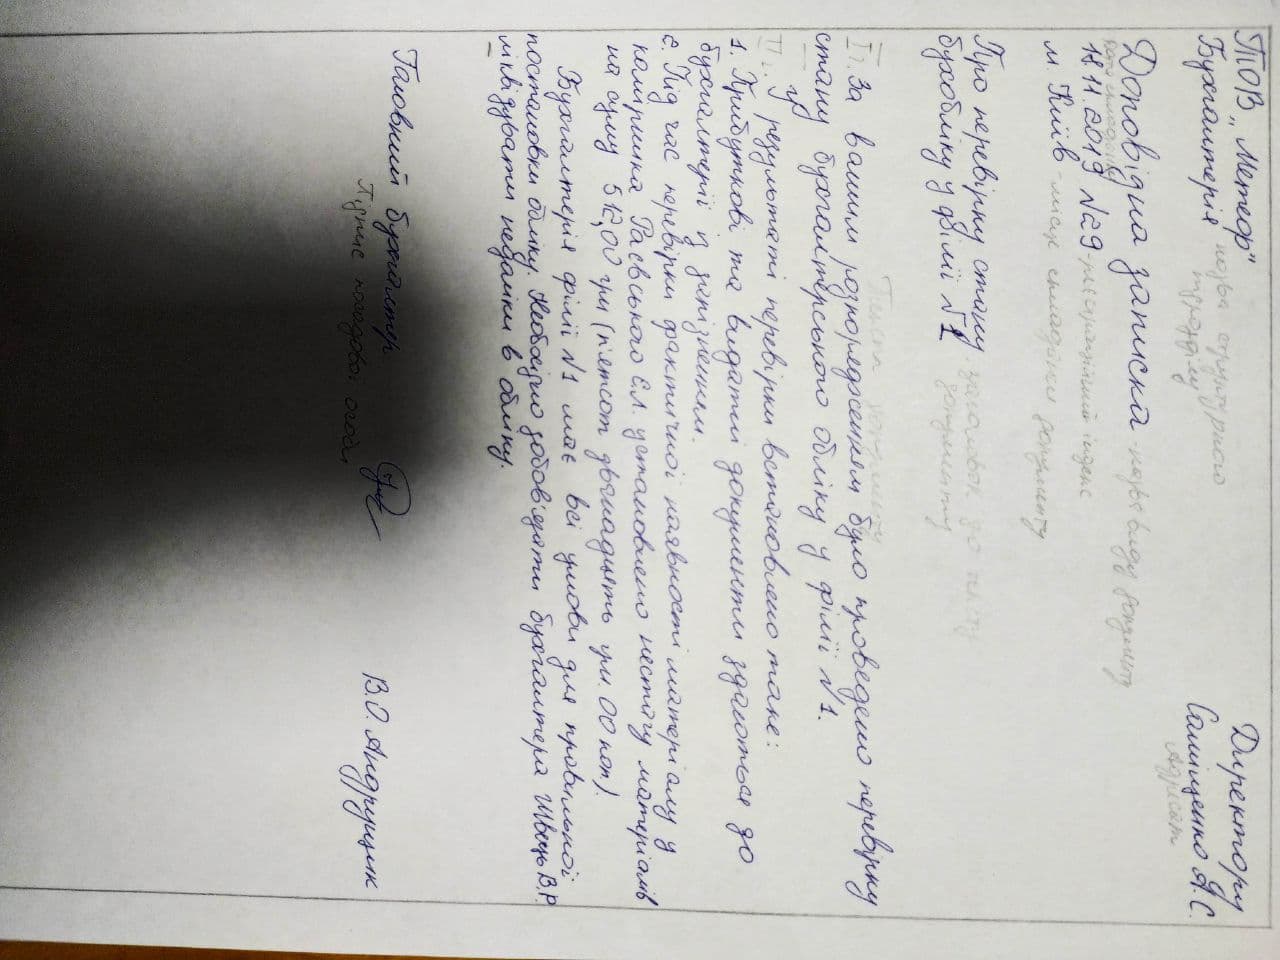 ТОВ „Метеор"
Директору
Бухгалтерія назва структурного
підрозділу
Саміщенко А.С.
Адресат
Доповідна записка - назва виду документу
Дата складання
18.11.2019 №29 - реєстраційний індекс
м. Київ - місце складання документу
Про перевірку стану заголовок до тексту
бухобліку у філії №1 документу
Текст документу
I. За вашим розпорядженням було проведено перевірку
стану бухгалтерського обліку у філії №1.
II. У результаті перевірки встановлено таке:
1. Прибуткові та видатні документи здаються до
бухгалтерії із запізненням.
2. Під час перевірки фактичної наявності матеріалу у
комірника Раєвського Є.Л. установлено нестачу матеріалів
на суму 512,00 грн (п'ятсот дванадцять грн. 00 коп).
Бухгалтерія філії №1 має всі умови для правильної
постановки обліку. Необхідно зобов'язати бухгалтера Швець В.Р.
ліквідувати недоліки в обліку.
Головний бухгалтер
В.О. Андрущик
Підпис посадової особи